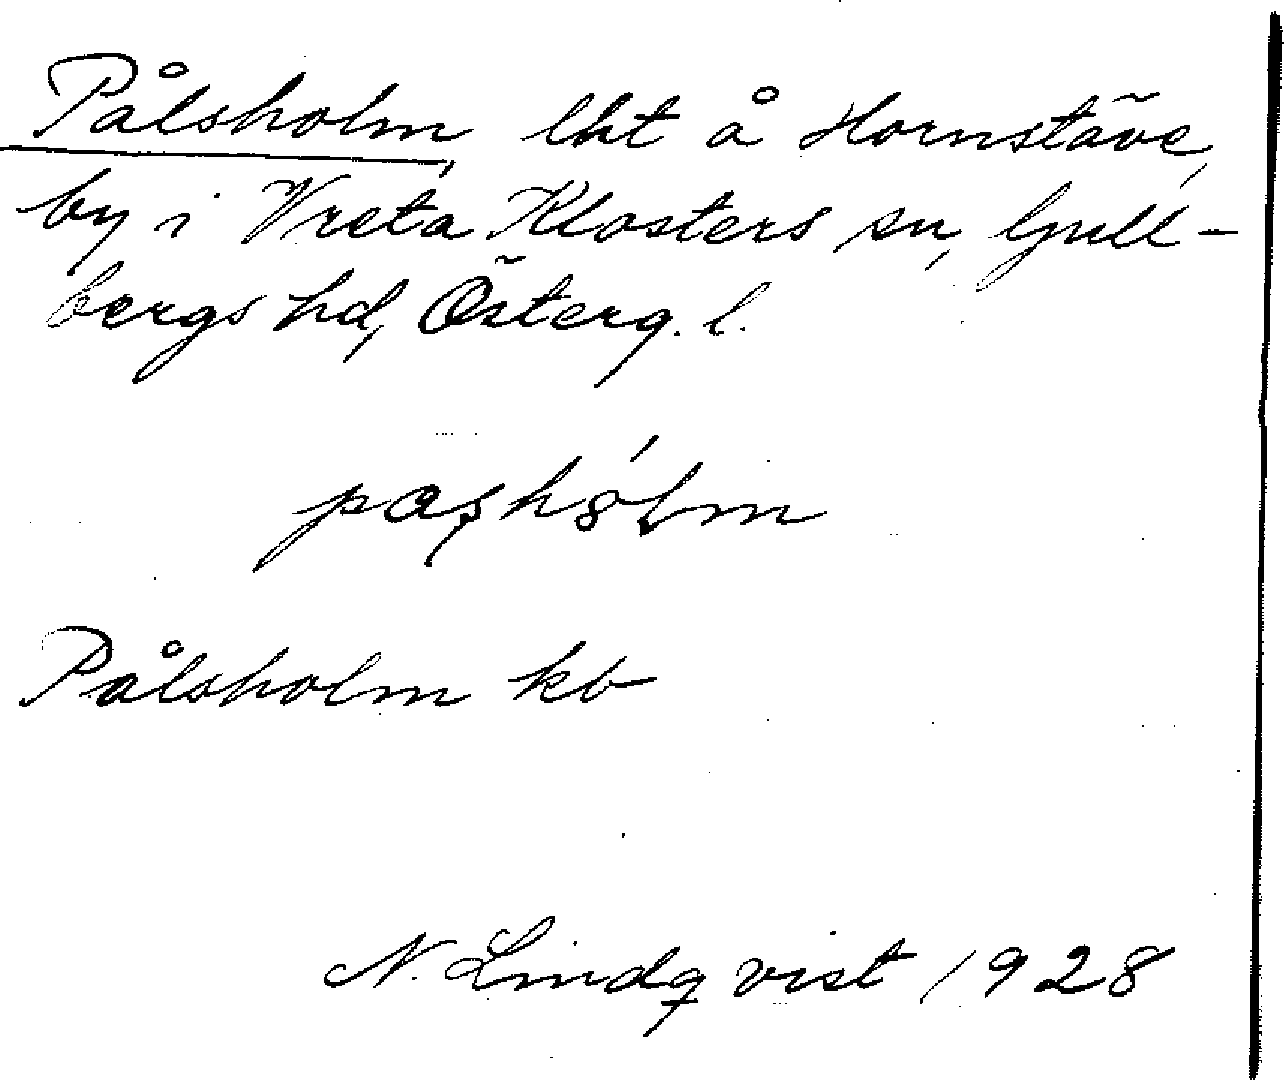 Pålsholm, lht å Hornstäve,
by i Vreta Klosters sn, Gull-
bergs hd, Österg. l.
Pålsholm kb
N. Lindqvist 1928